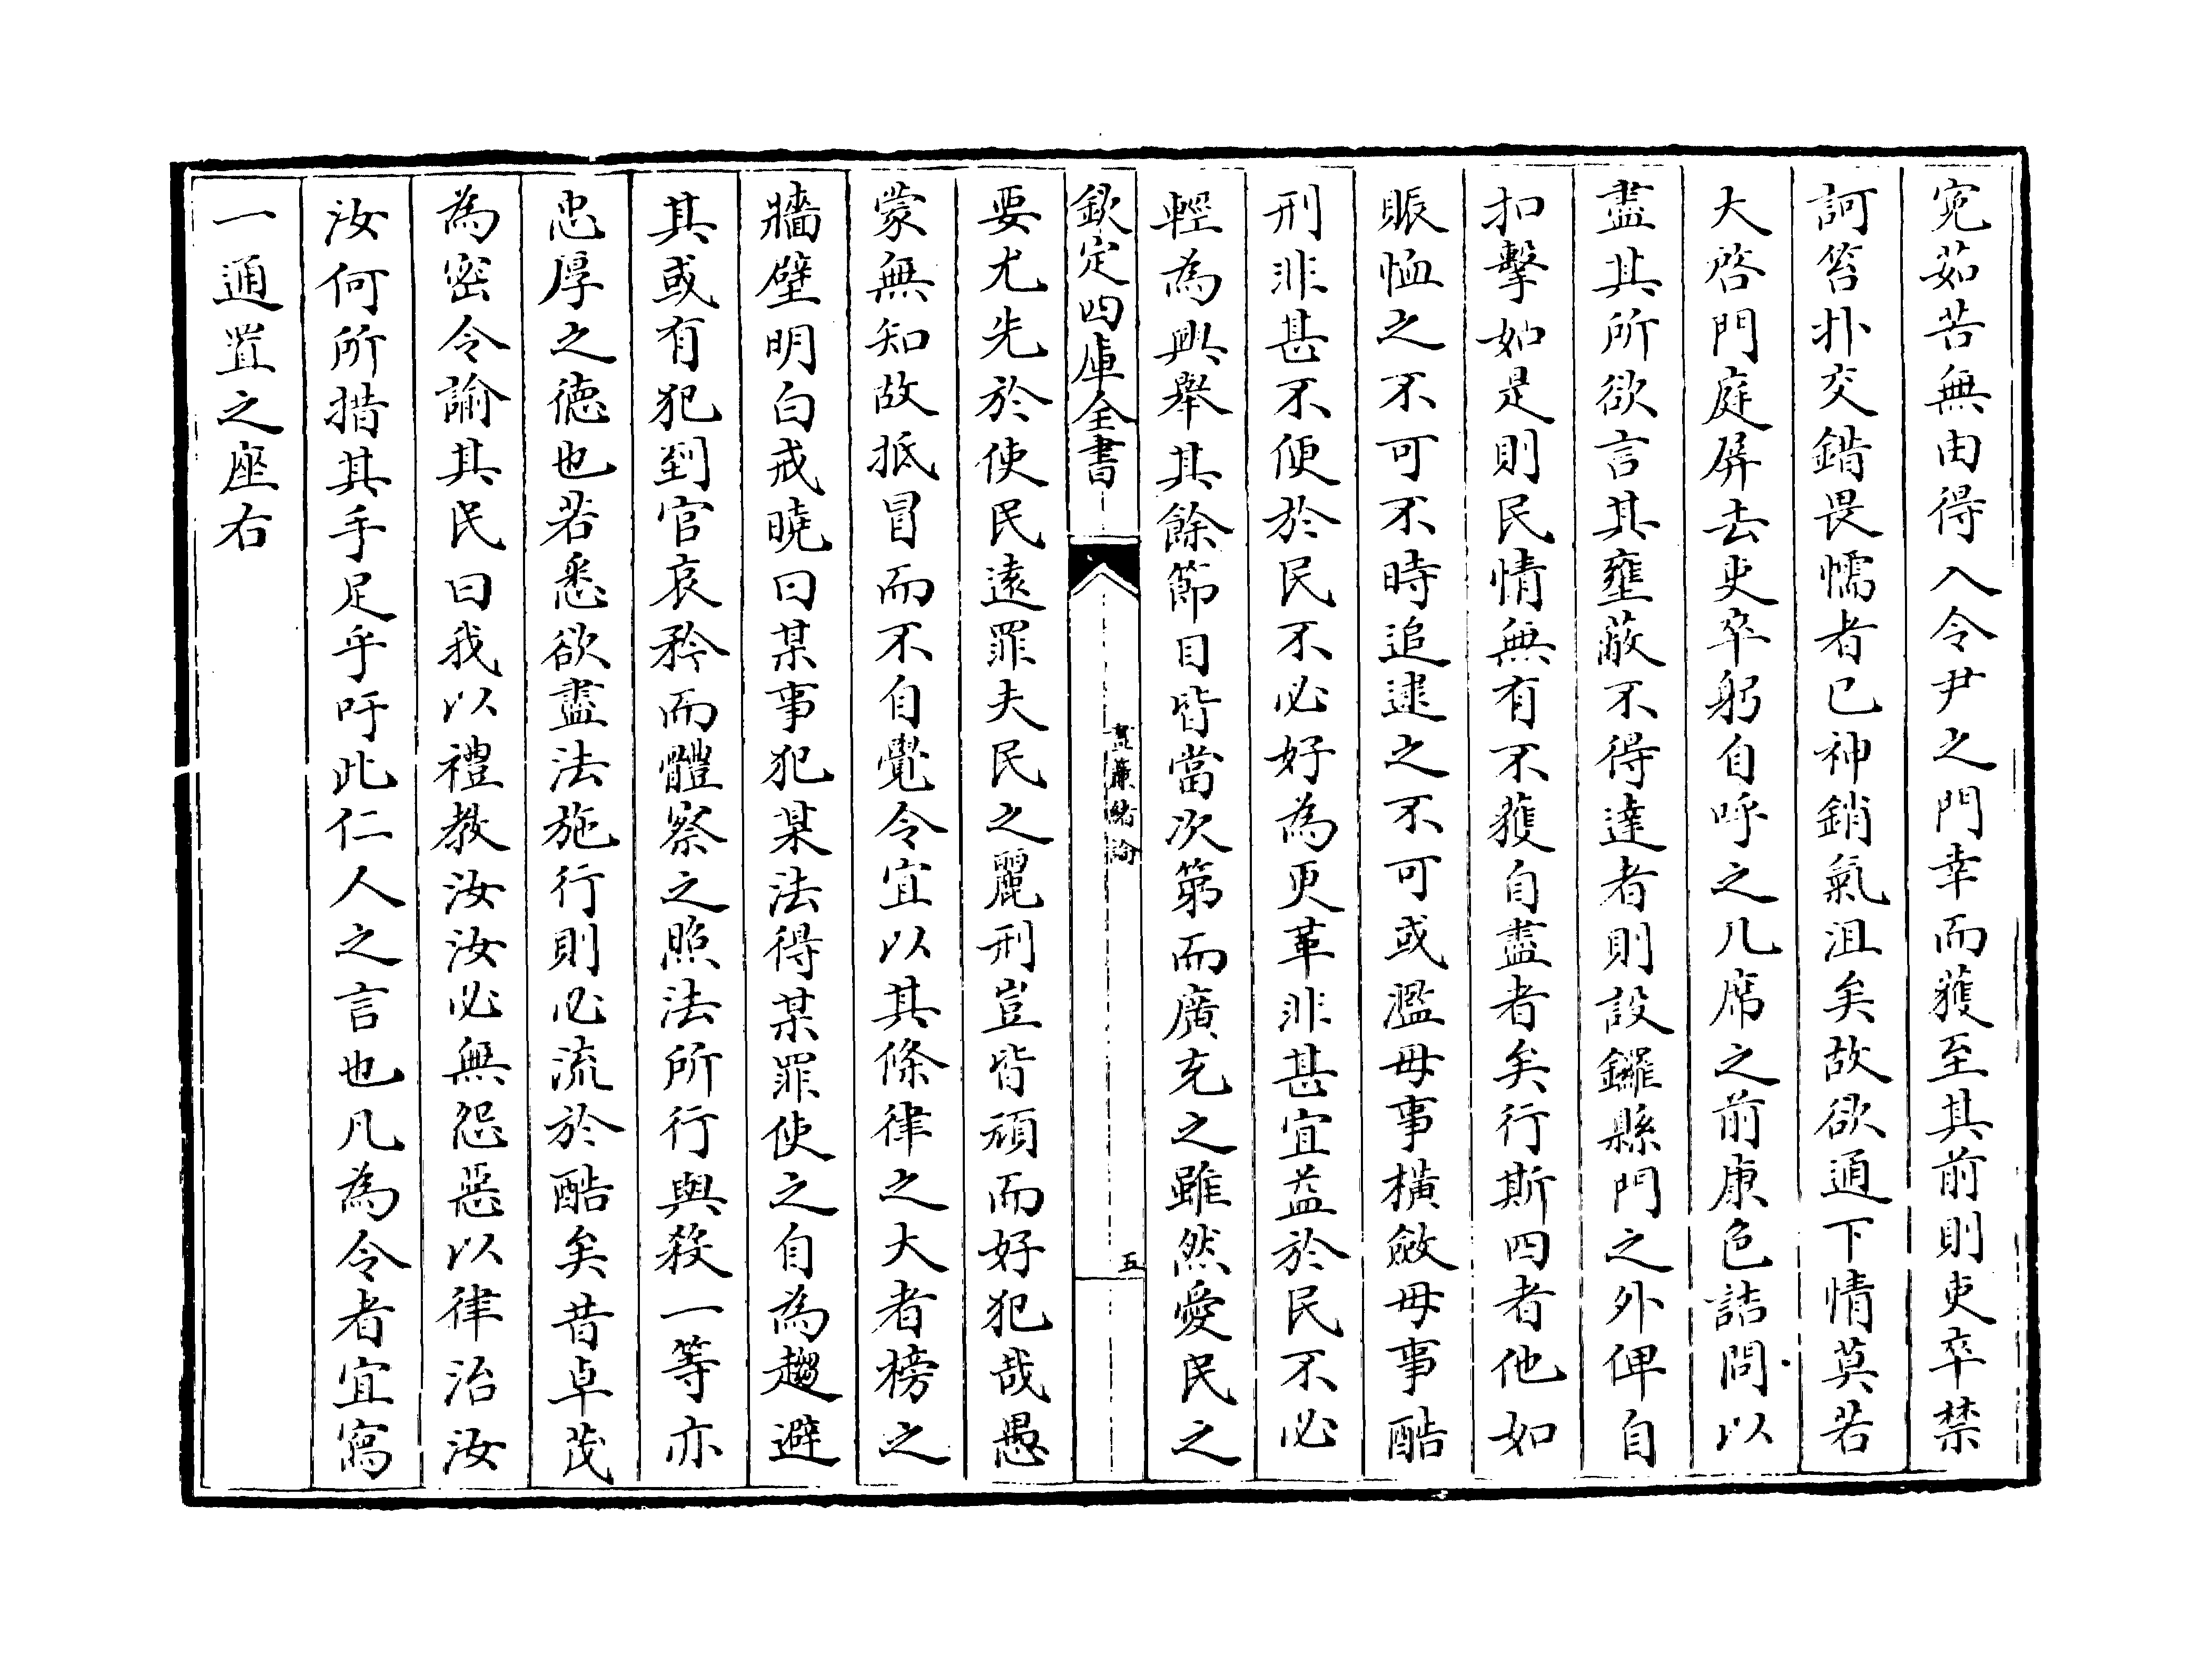 寃茹苦無由得入令尹之門幸而獲至其前則吏卒禁
訶笞扑交錯畏懦者已神銷氣沮矣故欲通下情莫若
大啓門庭屏去吏卒躬自呼之几席之前康色詰問以
盡其所欲言其壅蔽不得達者則設鑼縣門之外俾自
扣擊如是則民情無有不獲自盡者矣行斯四者他如
賑恤之不可不時追逮之不可或濫毋事橫斂毋事酷
刑非甚不便於民不必好為更革非甚宜益於民不必
輕為興舉其餘節目皆當次第而廣充之雖然愛民之
欽定四庫全書
晝簾緒論
五
要尤先於使民遠罪夫民之麗刑豈皆頑而好犯哉愚
蒙無知故抵冒而不自覺令宜以其條律之大者榜之
牆壁明白戒曉曰某事犯某法得某罪使之自為趨避
其或有犯到官哀矜而體察之照法所行與殺一等亦
忠厚之德也若悉欲盡法施行則必流於酷矣昔卓茂
為密令諭其民曰我以禮教汝汝必無怨惡以律治汝
汝何所措其手足乎吁此仁人之言也凡為令者宜寫
一通置之座右